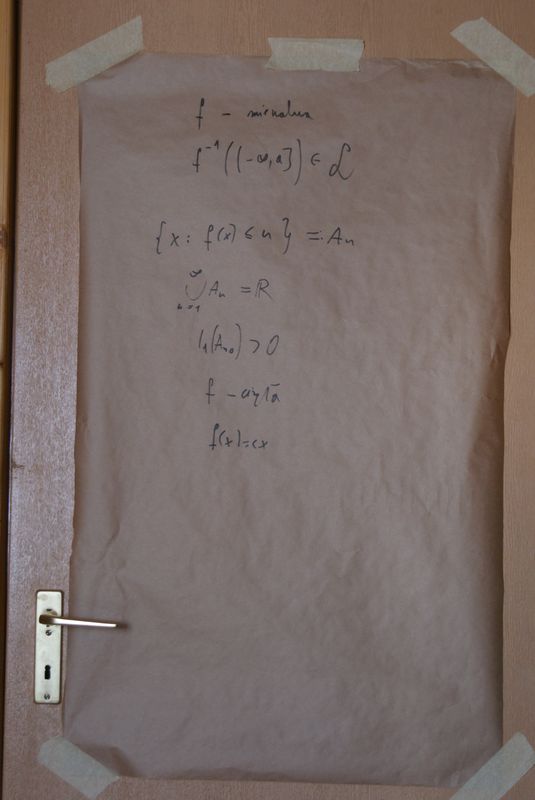 f - mierzalna
f⁻¹((-∞,a]) ∈ ℒ
{x: f(x) ≤ n} =: Aₙ
⋃ₙ₌₁^∞ Aₙ = ℝ
l₁(Aₙ₀) > 0
f - ciągła
f(x)=cx